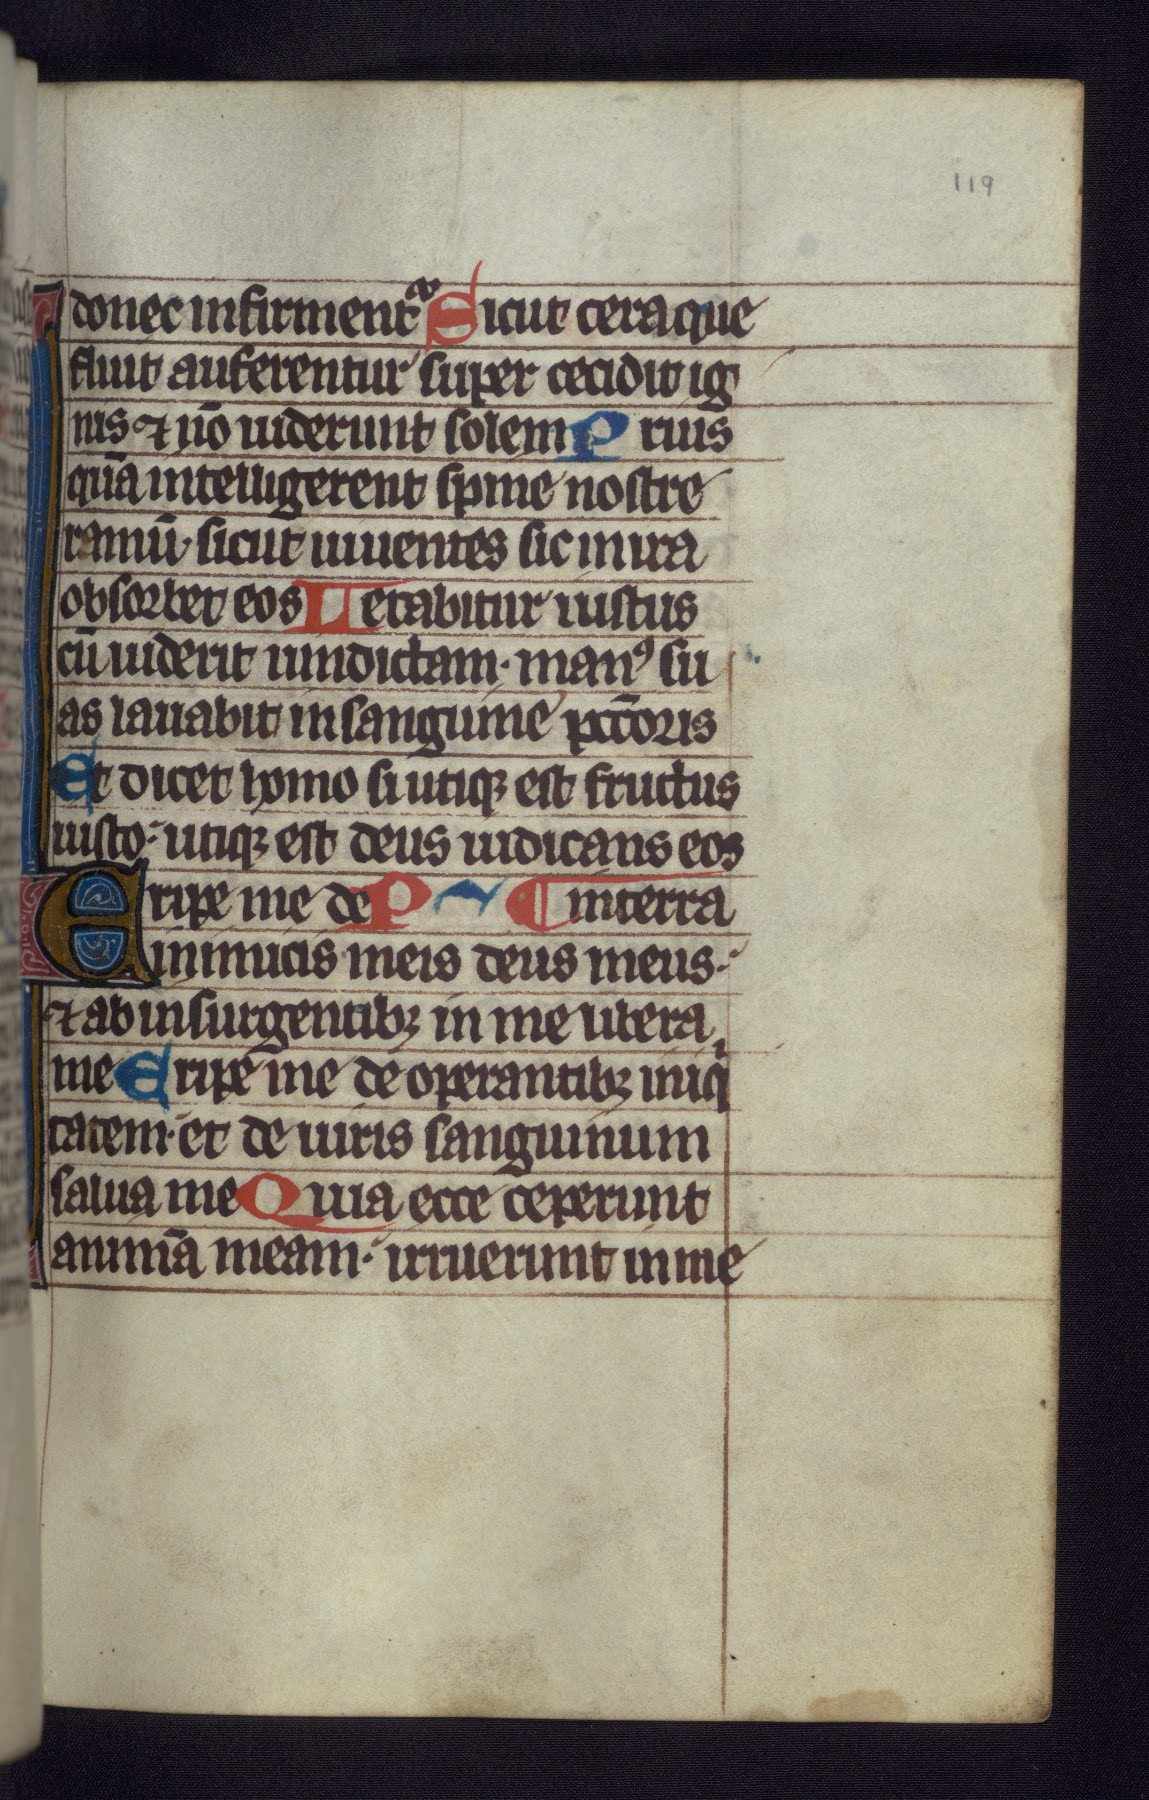 119
donec infirment᷑ Sicut cera que
fluit auferentur super cecidit ig
nis ⁊ nō uiderunt solem P rius
quā intelligerent spine nostre
ramū· sicut uiuentes sic in ira
obsorbet eos Letabitur iustus
cū uiderit uindictam· manꝰ su
as lauabit in sanguine pctōris
Et dicet homo si utiqꝫ est fructus
iusto· utiqꝫ est deus iudicans eos
Eripe me de P ~ ¶ in terra
inimicis meis deus meus·
⁊ ab insurgentibꝫ in me libera
me Eripe me de operantibꝫ iniqͥ
tatem· et de uiris sanguinum
salua me Quia ecce ceperunt
animā meam· irruerunt in me